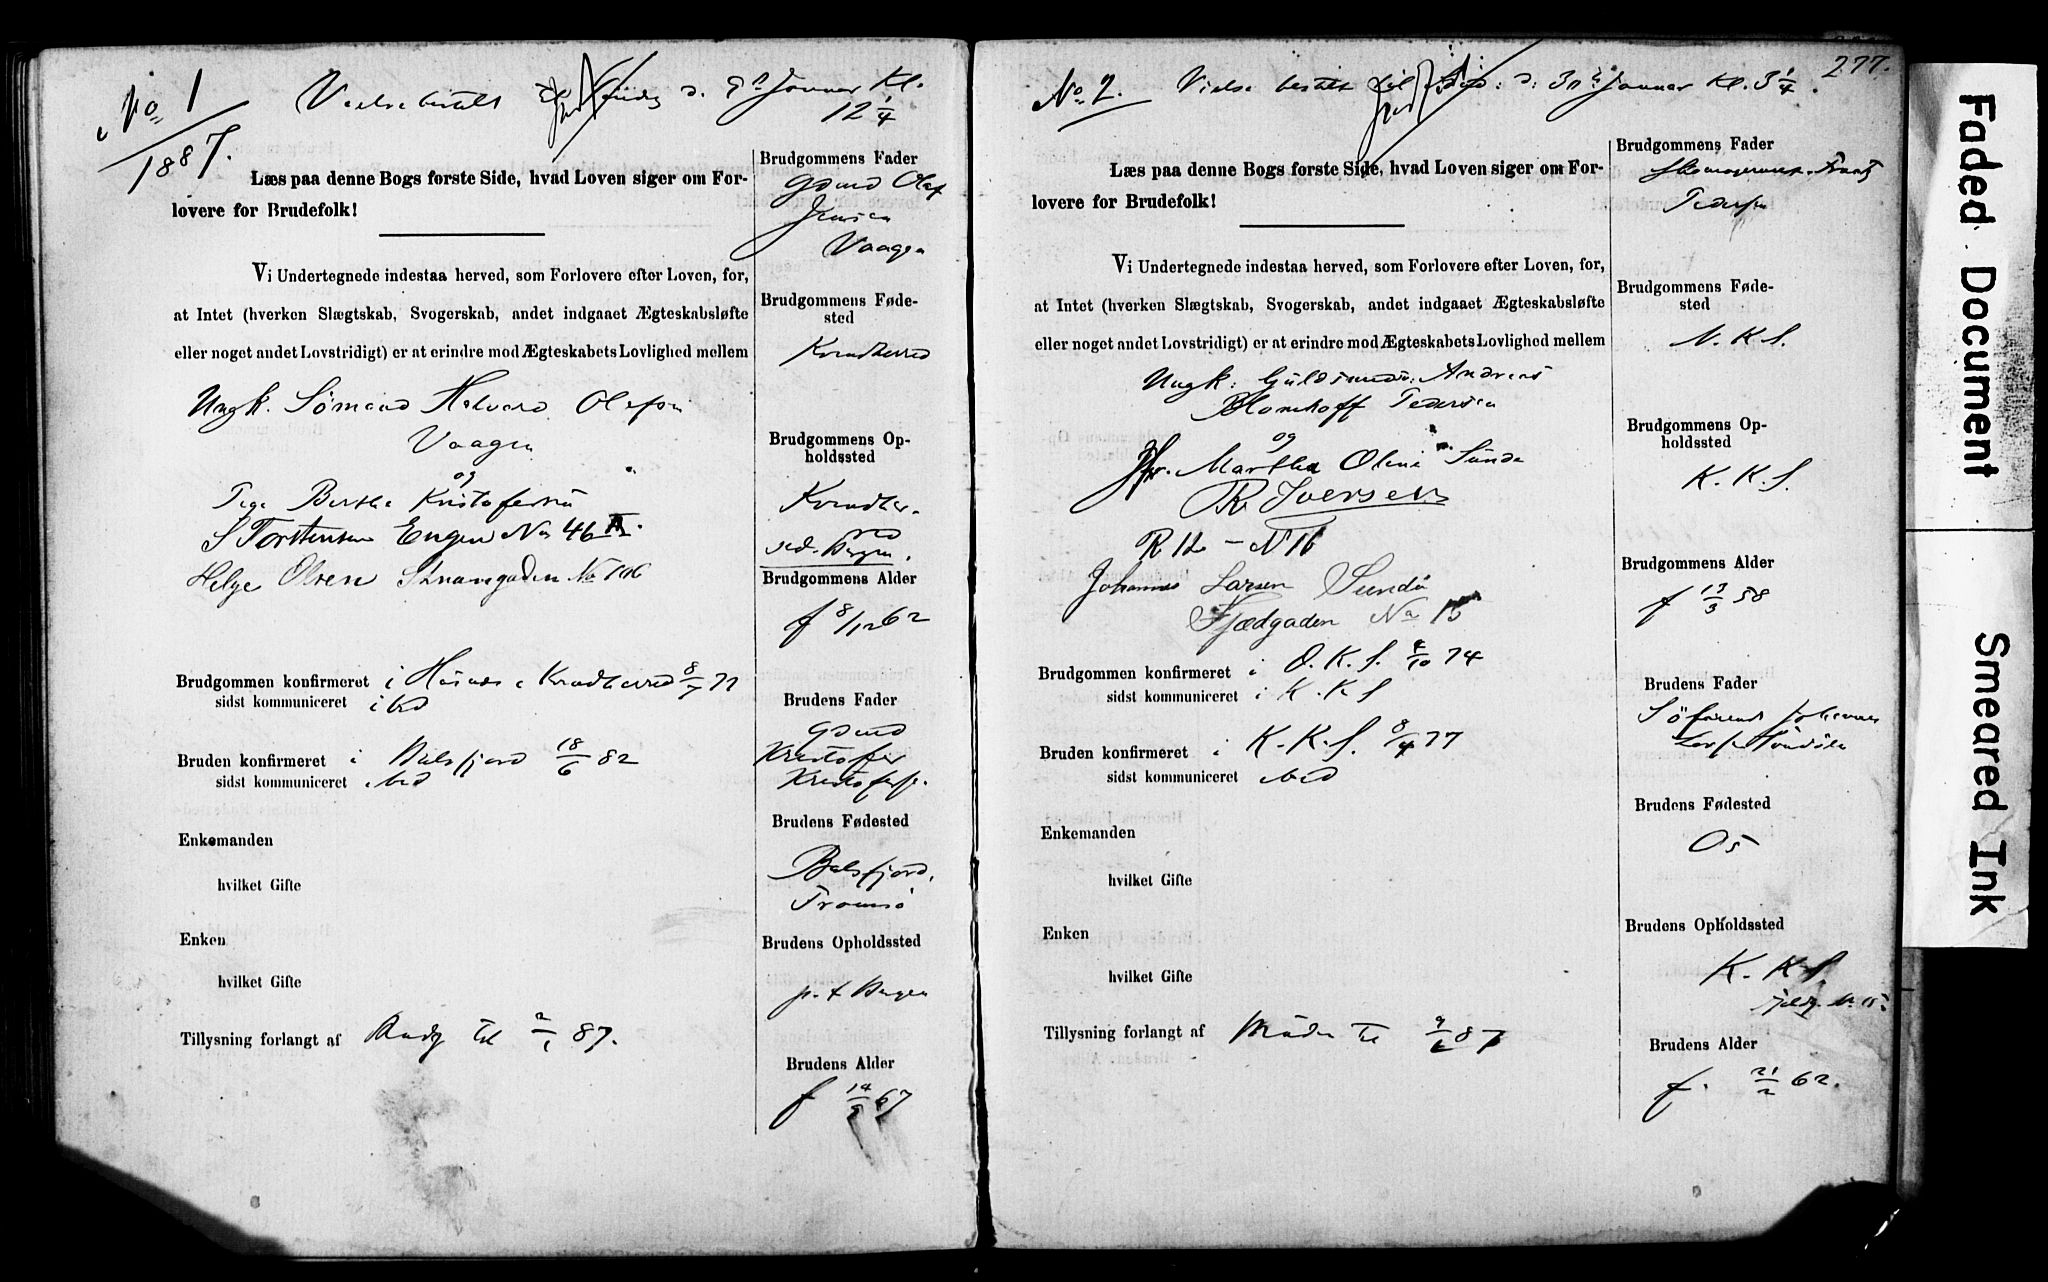 No 1
1887.
Vielse bestilt d. 9de Januar Kl. 12 1/4
Læs paa denne Bogs første Side, hvad Loven siger om For-
lovere for Brudefolk!
Vi Undertegnede indestaa herved, som Forlovere efter Loven, for,
at Intet (hverken Slægtskab, Svogerskab, andet indgaaet Ægteskabsløfte
eller noget andet Lovstridigt) er at erindre mod Ægteskabets Lovlighed mellem
Ungk. Sømand Halvard Olefsen
Vaagen
og
Pige Bertha Kristofersen
S Torstensen Engen No 46
Helge Olsen
Brudgommen konfirmeret i Kvindherred 8/7 77
sidst kommuniceret ibid
Bruden konfirmeret i Balsfjord 18/6 82
sidst kommuniceret ibid
Enkemanden
hvilket Gifte
Enken
hvilket Gifte
Tillysning forlangt af Brudg til 2/1 87.
Brudgommens Fader
Gdmd Olef
Jensen
Vaagen
Brudgommens Føde-
sted
Kvindherred
Brudgommens Op-
holdssted
Kvindher-
red
ved Bergen.
Brudgommens Alder
f 8/12 62
Brudens Fader
Gdmd
Kristofer
Kristofers.
Brudens Fødested
Balsfjord,
Tromsø
Brudens Opholdssted
p. t Bergen
Brudens Alder
f 14/5 67
277.
No 2. Vielse bestilt til d: 30te Januar Kl. 3 1/4.
Læs paa denne Bogs første Side, hvad Loven siger om For-
lovere for Brudefolk!
Vi Undertegnede indestaa herved, som Forlovere efter Loven, for,
at Intet (hverken Slægtskab, Svogerskab, andet indgaaet Ægteskabsløfte
eller noget andet Lovstridigt) er at erindre mod Ægteskabets Lovlighed mellem
Ungk: Guldsmedsv: Andreas
Blomhoff Pedersen
og
Jfr. Martha Oline Sunde
R Iversen
R 12 - N 16
Johannes Larsen Sundö
Fjædgaden No 15
Brudgommen konfirmeret i D. K. S. 4/10 74
sidst kommuniceret i K. K S
Bruden konfirmeret i K. K. S. 8/4 77
sidst kommuniceret ibid
Enkemanden
hvilket Gifte
Enken
hvilket Gifte
Tillysning forlangt af til 9/1 87
Brudgommens Fader
Skomagermst. Frantz
Pedersen
Brudgommens Føde-
sted
N. K. S.
Brudgommens Op-
holdssted
K. K. S.
Brudgommens Alder
f 13/3 58
Brudens Fader
Söfarende Johannes
Brudens Fødested
Os
Brudens Opholdssted
K. K S.
Fjeldg. No. 15.
Brudens Alder
f. 21/2 62.
Faded Document
Smeared Ink